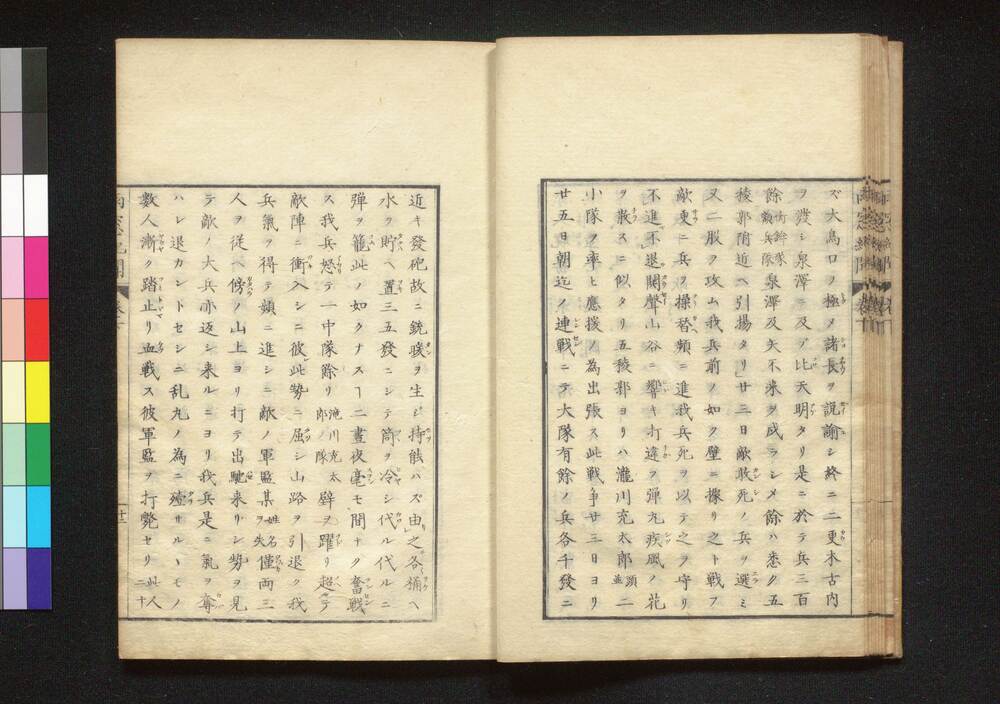 ズ大鳥口ノ極メ諸長ヲ説諭シ終ニ二更木古内
ヲ發シ泉澤ニ及ブ比天明タリ是ニ於テ兵三百
餘衝鉾隊額兵隊泉澤及矢不来ヲ戍ラシメ餘ハ悉ク五
稜郭陏近ヘ引揚タリ」廿二日敵敢死ノ兵ヲ選ミ
又二服ヲ攻ム我兵前ノ如ク壁ニ據リ之ト戦フ
敵更ニ兵ヲ操替頻ニ進我兵死ヲ以テ之ヲ守リ
不進不退閧聲山谷ニ響キ打違フ弾丸疾風ノ花
ヲ散スニ似タリ五稜郭ヨリハ瀧川充太郎頭並二
小隊ヲ率ヒ應援ノ為出張ス此戦争廿三日ヨリ
廿五日朝迄ノ連戦ニテ大隊有餘ノ兵各千發ニ
近キ發砲故ニ銃煖ヲ生ジ持能ハズ由之各桶ヘ
水ヲ貯ヘ置三五發ニシテ筒ヲ冷シ代ル代ルニ
弾ヲ籠此ノ如クナスヿ二晝夜毫モ間ナク奮戦
ス我兵怒テ一中隊餘リ滝川充太郎ノ隊壁ヲ躍リ超テ
敵陣ニ衝入シニ彼此勢ニ屈シ山路ヲ引退ク我
兵氣ヲ得テ頻ニ進シニ敵ノ軍監某姓名ヲ失僅両三
人ヲ従ヘ傍ノ山上ヨリ打テ出馳来リシ勢ヲ見
テ敵ノ大兵亦返シ来ルニヨリ我兵是ニ氣ヲ奪
ハレ退カントセシニ乱丸ノ為ニ殪サルヽモノ
數人漸ク踏止リ血戦ス彼軍監ヲ打斃セリ此人二十